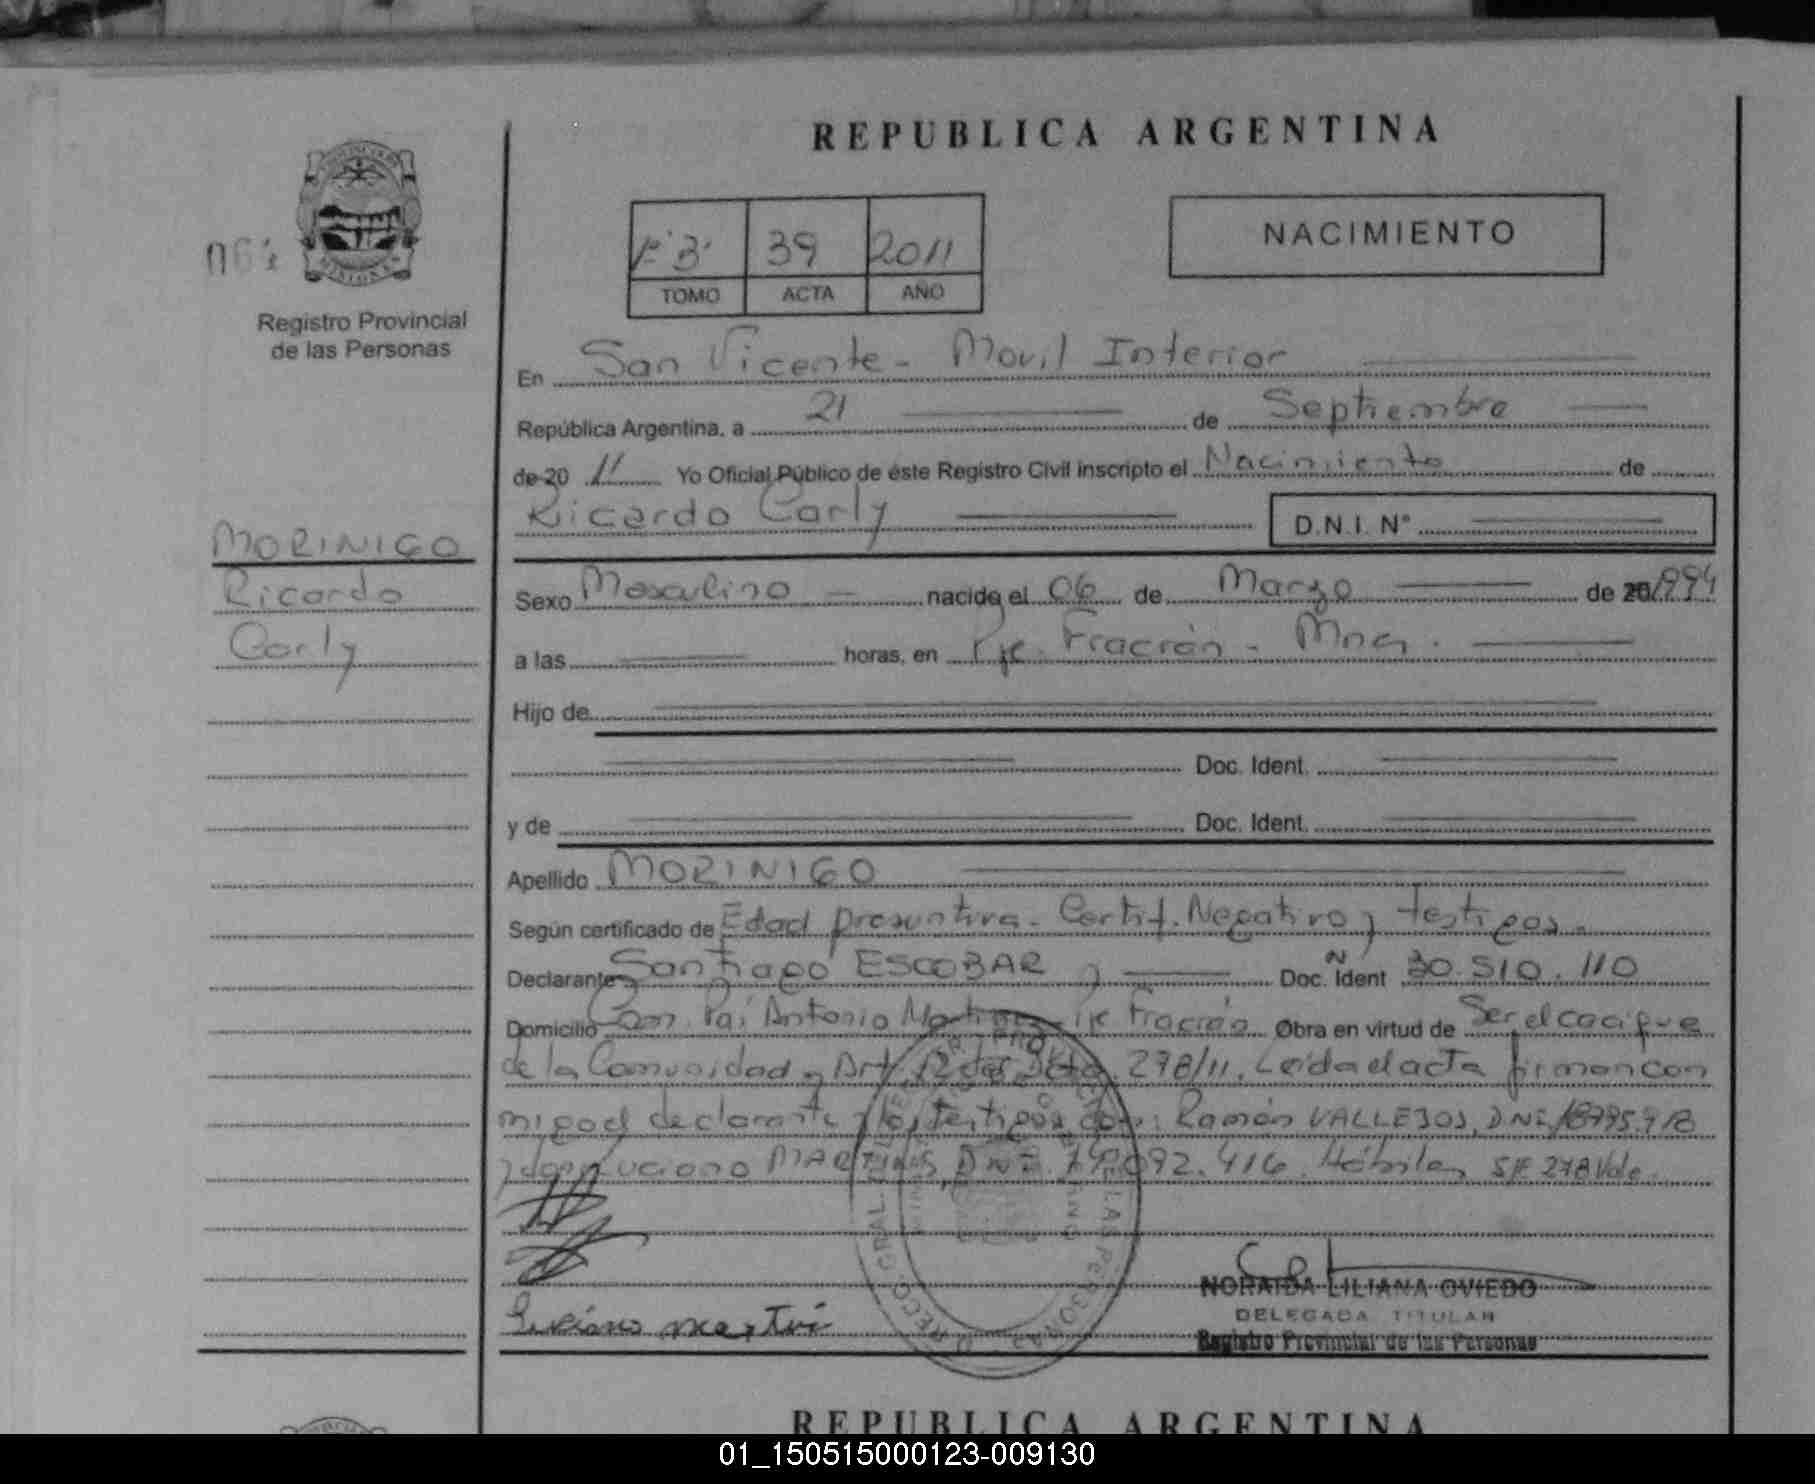 REPUBLICA ARGENTINA
39 2011
TOMO ACTA AÑO
NACIMIENTO
MISIONES
Registro Provincial
de las Personas
En San Vicente - Movil Interior
República Argentina, a 21 de Septiembre
de 20 11 Yo Oficial Público de éste Registro Civil inscripto el Nacimiento de
Ricardo Carly D.N.I. N°
MORINIGO
Ricardo
Carly
Sexo Masculino nacido el 06 de Marzo de 20 1994
a las horas, en Pje. Fracrán - Mnes.
Hijo de
Doc. Ident.
y de Doc. Ident.
Apellido MORINIGO
Según certificado de Edad presuntiva - Certif. Negativo y testigos.
Declarante Santiago ESCOBAR Doc. Ident N° 30.510.110
Domicilio Com. Pai Antonio Martinez - Pje Fracrán Obra en virtud de Ser el cacique
de la Comunidad y Art. 12 del Dcto. 278/11. Leida el acta firman con
migo el declarante y los testigos don: Ramón VALLEJOS, DNI. 18795.918
y don Luciano MARTINES, DNI. 092.416. Hábiles S/E 278 Vale.
Luciano martin
NORAIDA LILIANA OVIEDO
DELEGADA TITULAR
Registro Provincial de las Personas
REPUBLICA ARGENTINA
01_150515000123-009130